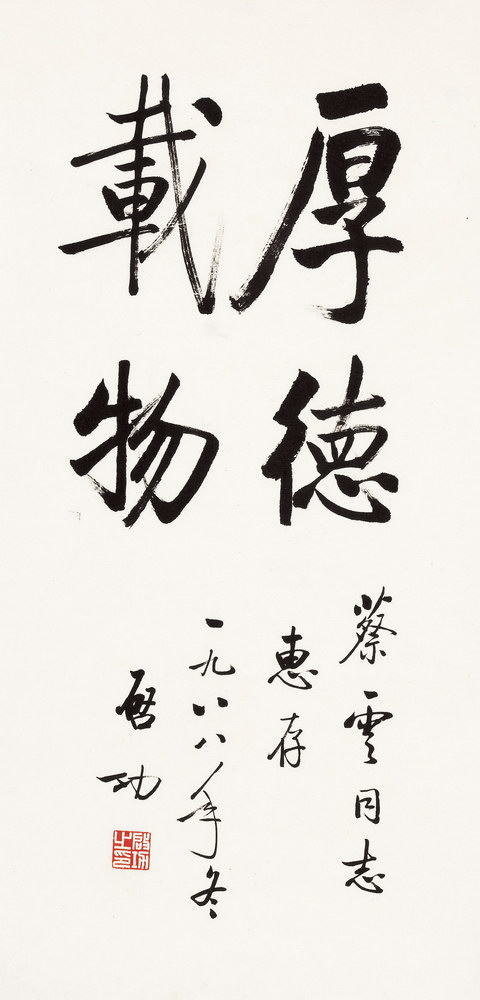 厚德
載物
蔡雲同志
惠存
一九八八年冬
啓功
啟功之印